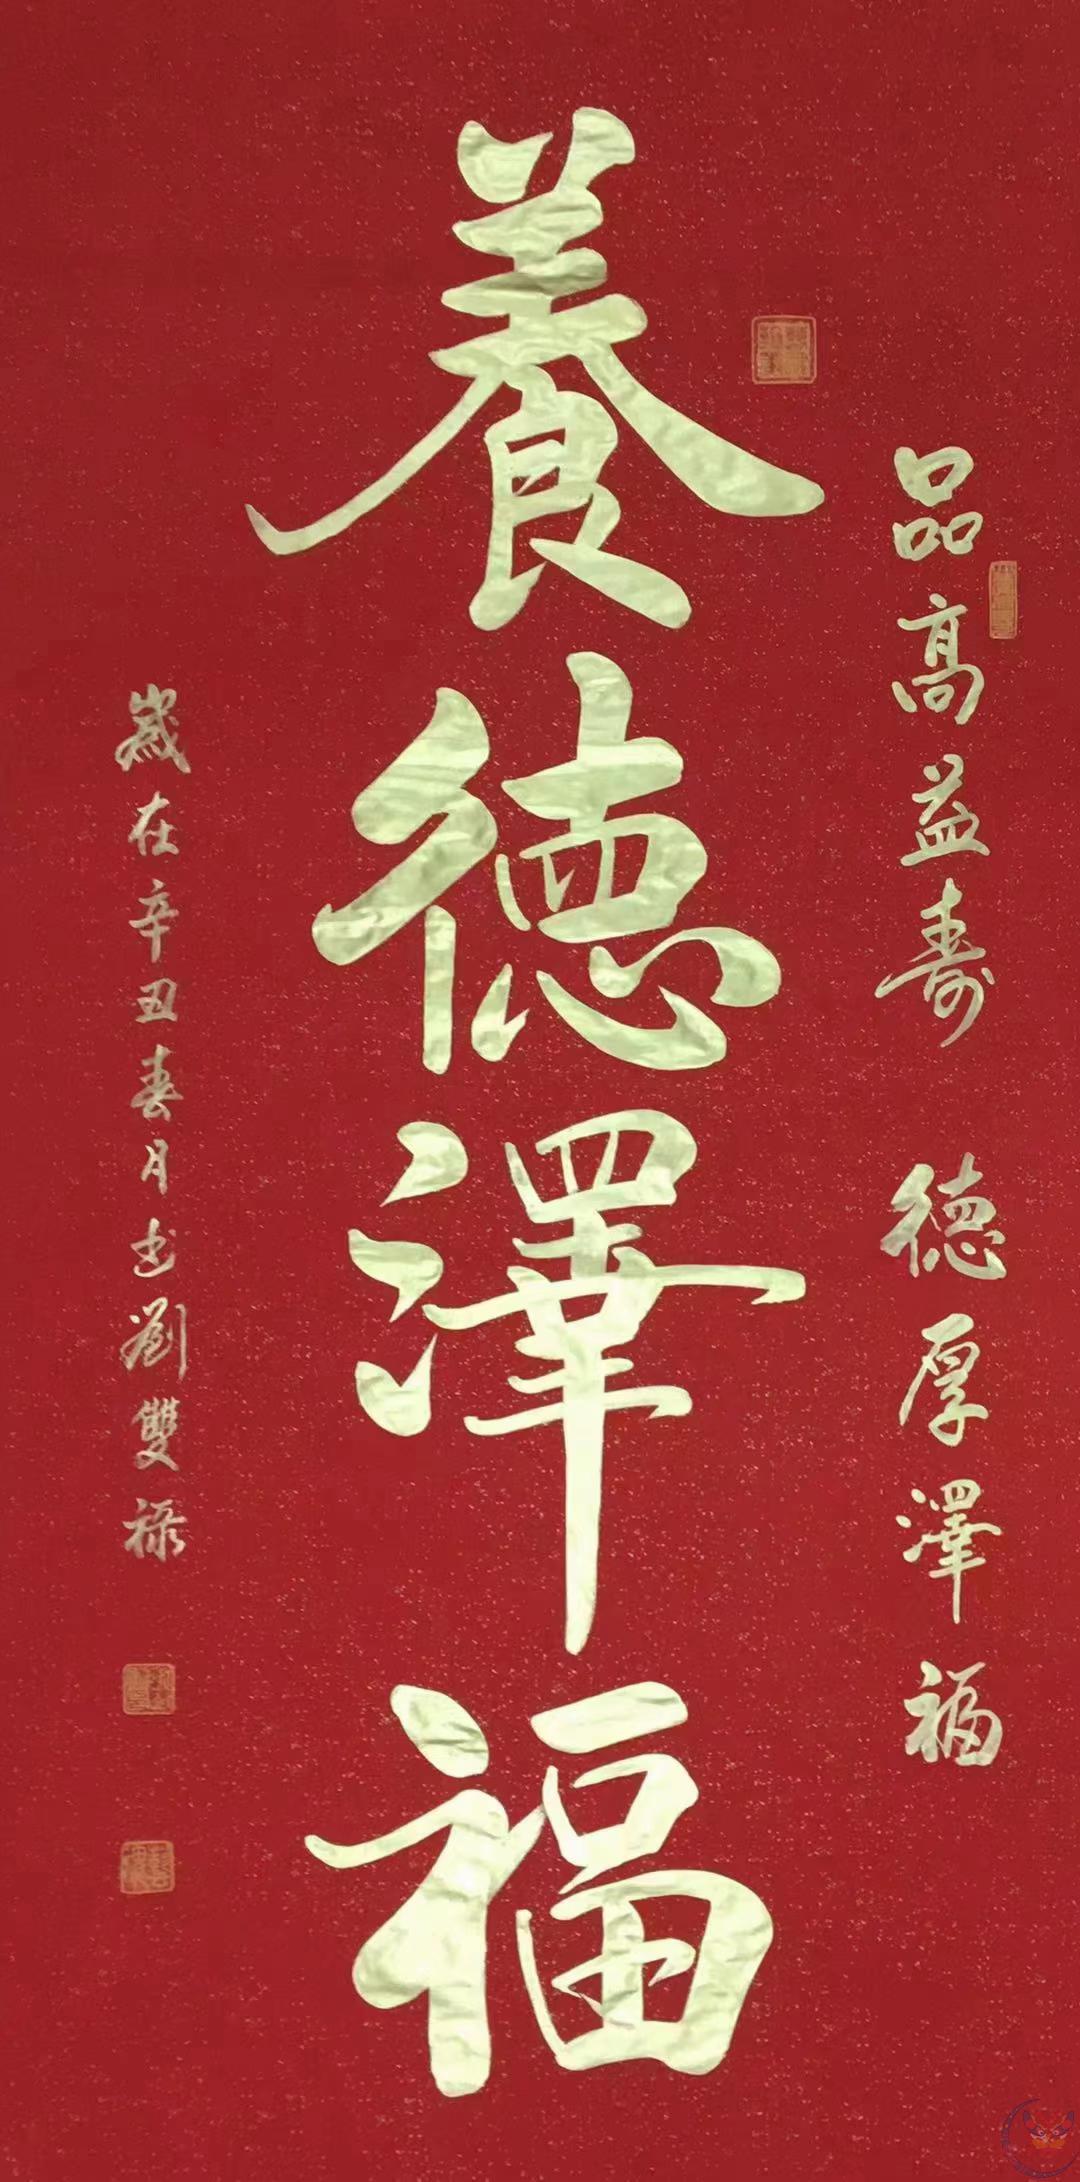 品高益壽 德厚澤福
養德澤福
歲在辛丑春月书劉雙祿